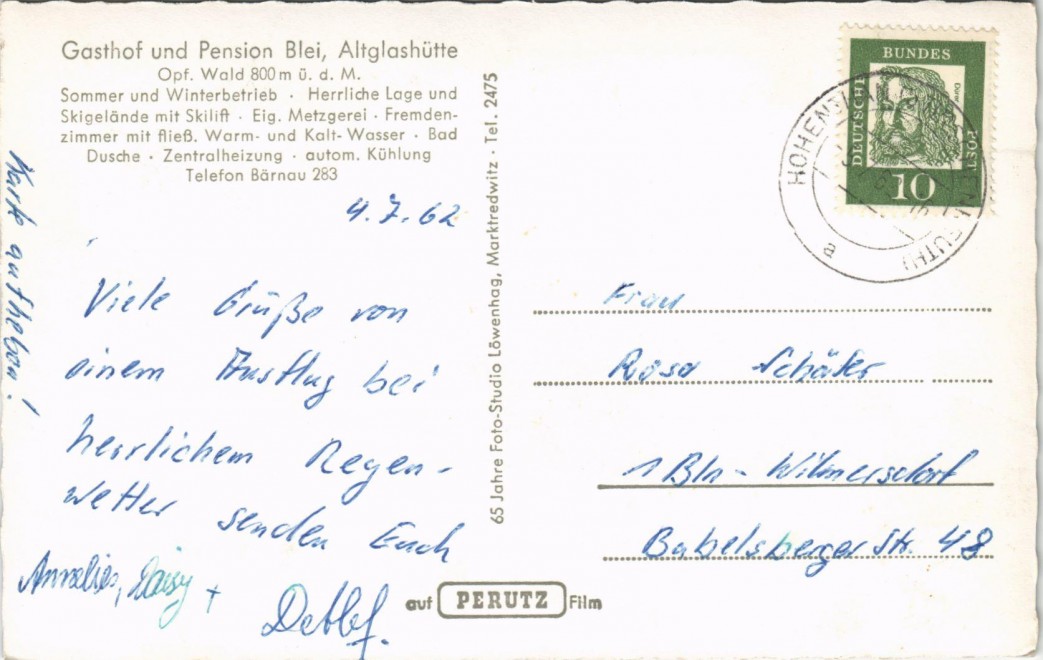 Gasthof und Pension Blei, Altglashütte
Opf. Wald 800 m ü. d. M.
Sommer und Winterbetrieb · Herrliche Lage und
Skigelände mit Skilift · Eig. Metzgerei · Fremden-
zimmer mit fließ. Warm- und Kalt-Wasser · Bad
Dusche · Zentralheizung · autom. Kühlung
Telefon Bärnau 283
4.7.62
Viele Grüße von
einem Ausflug bei
herrlichem Regen-
wetter senden Euch
Annelies, Daisy +
Detlef.
Karte aufheben!
65 Jahre Foto-Studio Löwenhag, Marktredwitz · Tel. 2475
auf PERUTZ Film
DEUTSCHE
BUNDES
POST
10
a
Frau
Rosa Schäfer
1 Bln - Wilmersdorf
Babelsberger Str. 48